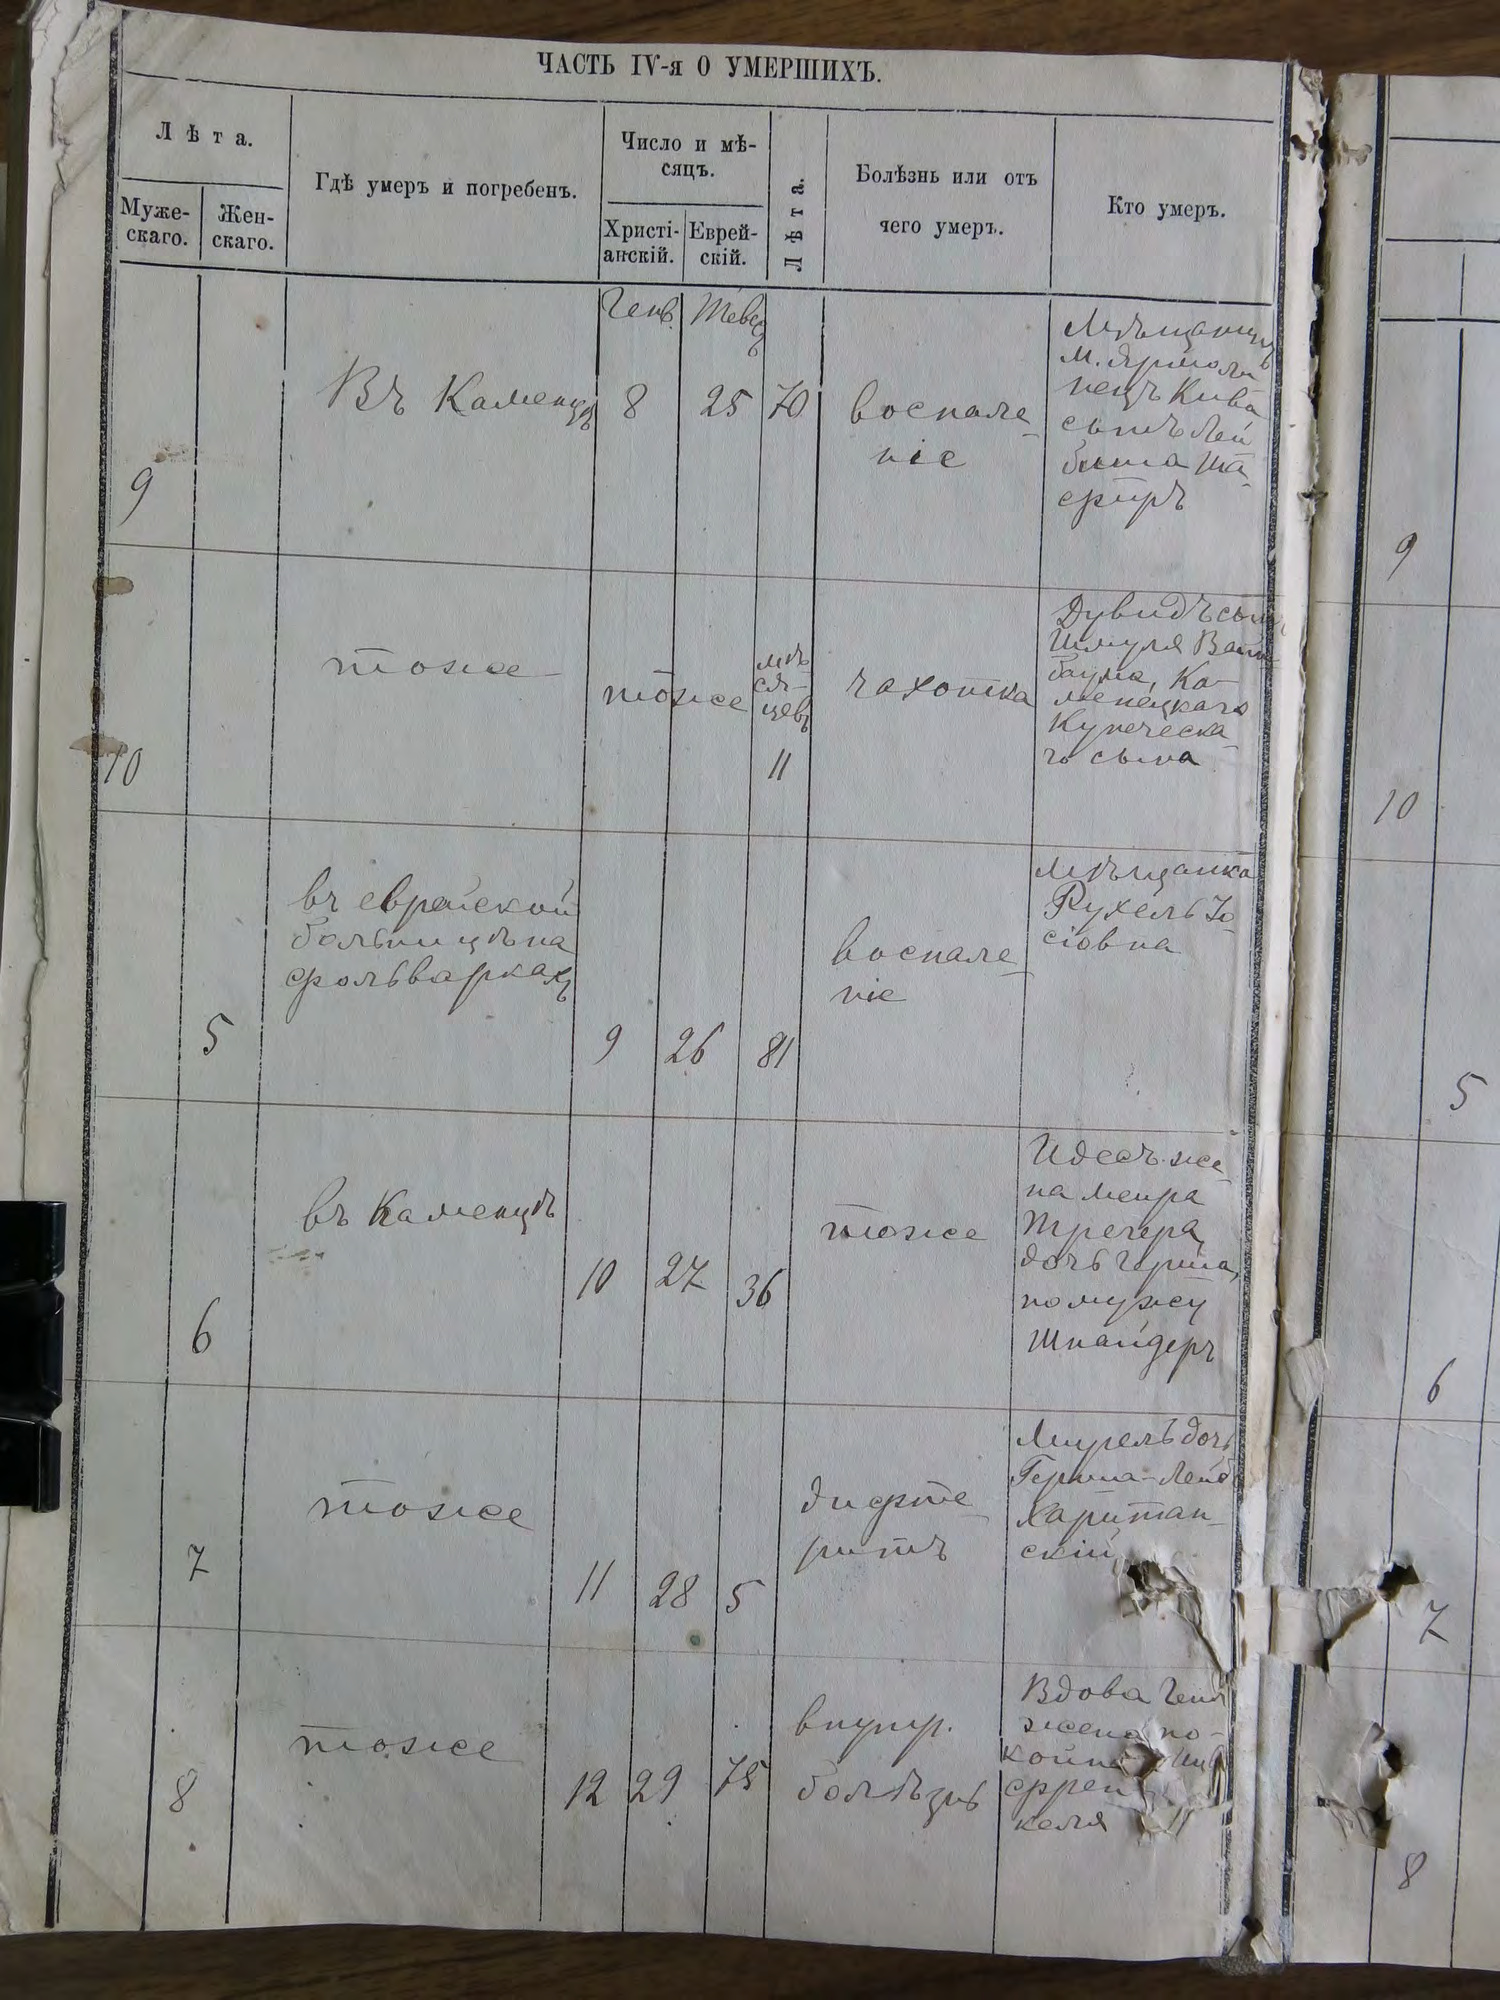 ЧАСТЬ IV-я О УМЕРШИХЪ.
Лѣта.
Муже-
скаго.
Жен-
скаго.
Гдѣ умеръ и погребенъ.
Число и мѣ-
сяцъ.
Христі-
анскій.
Еврей-
скій.
Лѣта.
Болѣзнь или отъ
чего умеръ.
Кто умеръ.
Генв.
9
Въ Каменцѣ
8
25
70
воспале-
ніе
Мѣщанинъ
сынъ Лей
9
10
тоже
тоже
мѣ
ся-
цевъ
11
чахотка
Дувидъ сынъ
Шмуля Вайн-
баума, Ка-
менецкаго
Купеческа-
го сына
10
5
въ еврейской
больницѣ на
фольваркахъ
9
26
81
воспале-
ніе
Мѣщанка
Рухель Іо-
сіовна
5
6
въ Каменцѣ
10
27
36
тоже
Идесъ же-
на Меира
Тречера,
дочь Герша,
по мужу
Шнайдеръ
6
7
тоже
11
28
5
дифте-
ритъ
Мирель дочь
Герша-Лейб
Харитан-
скій
7
8
тоже
12
29
75
внутр.
болѣзнь
Вдова
жена по-
френ
келя
8